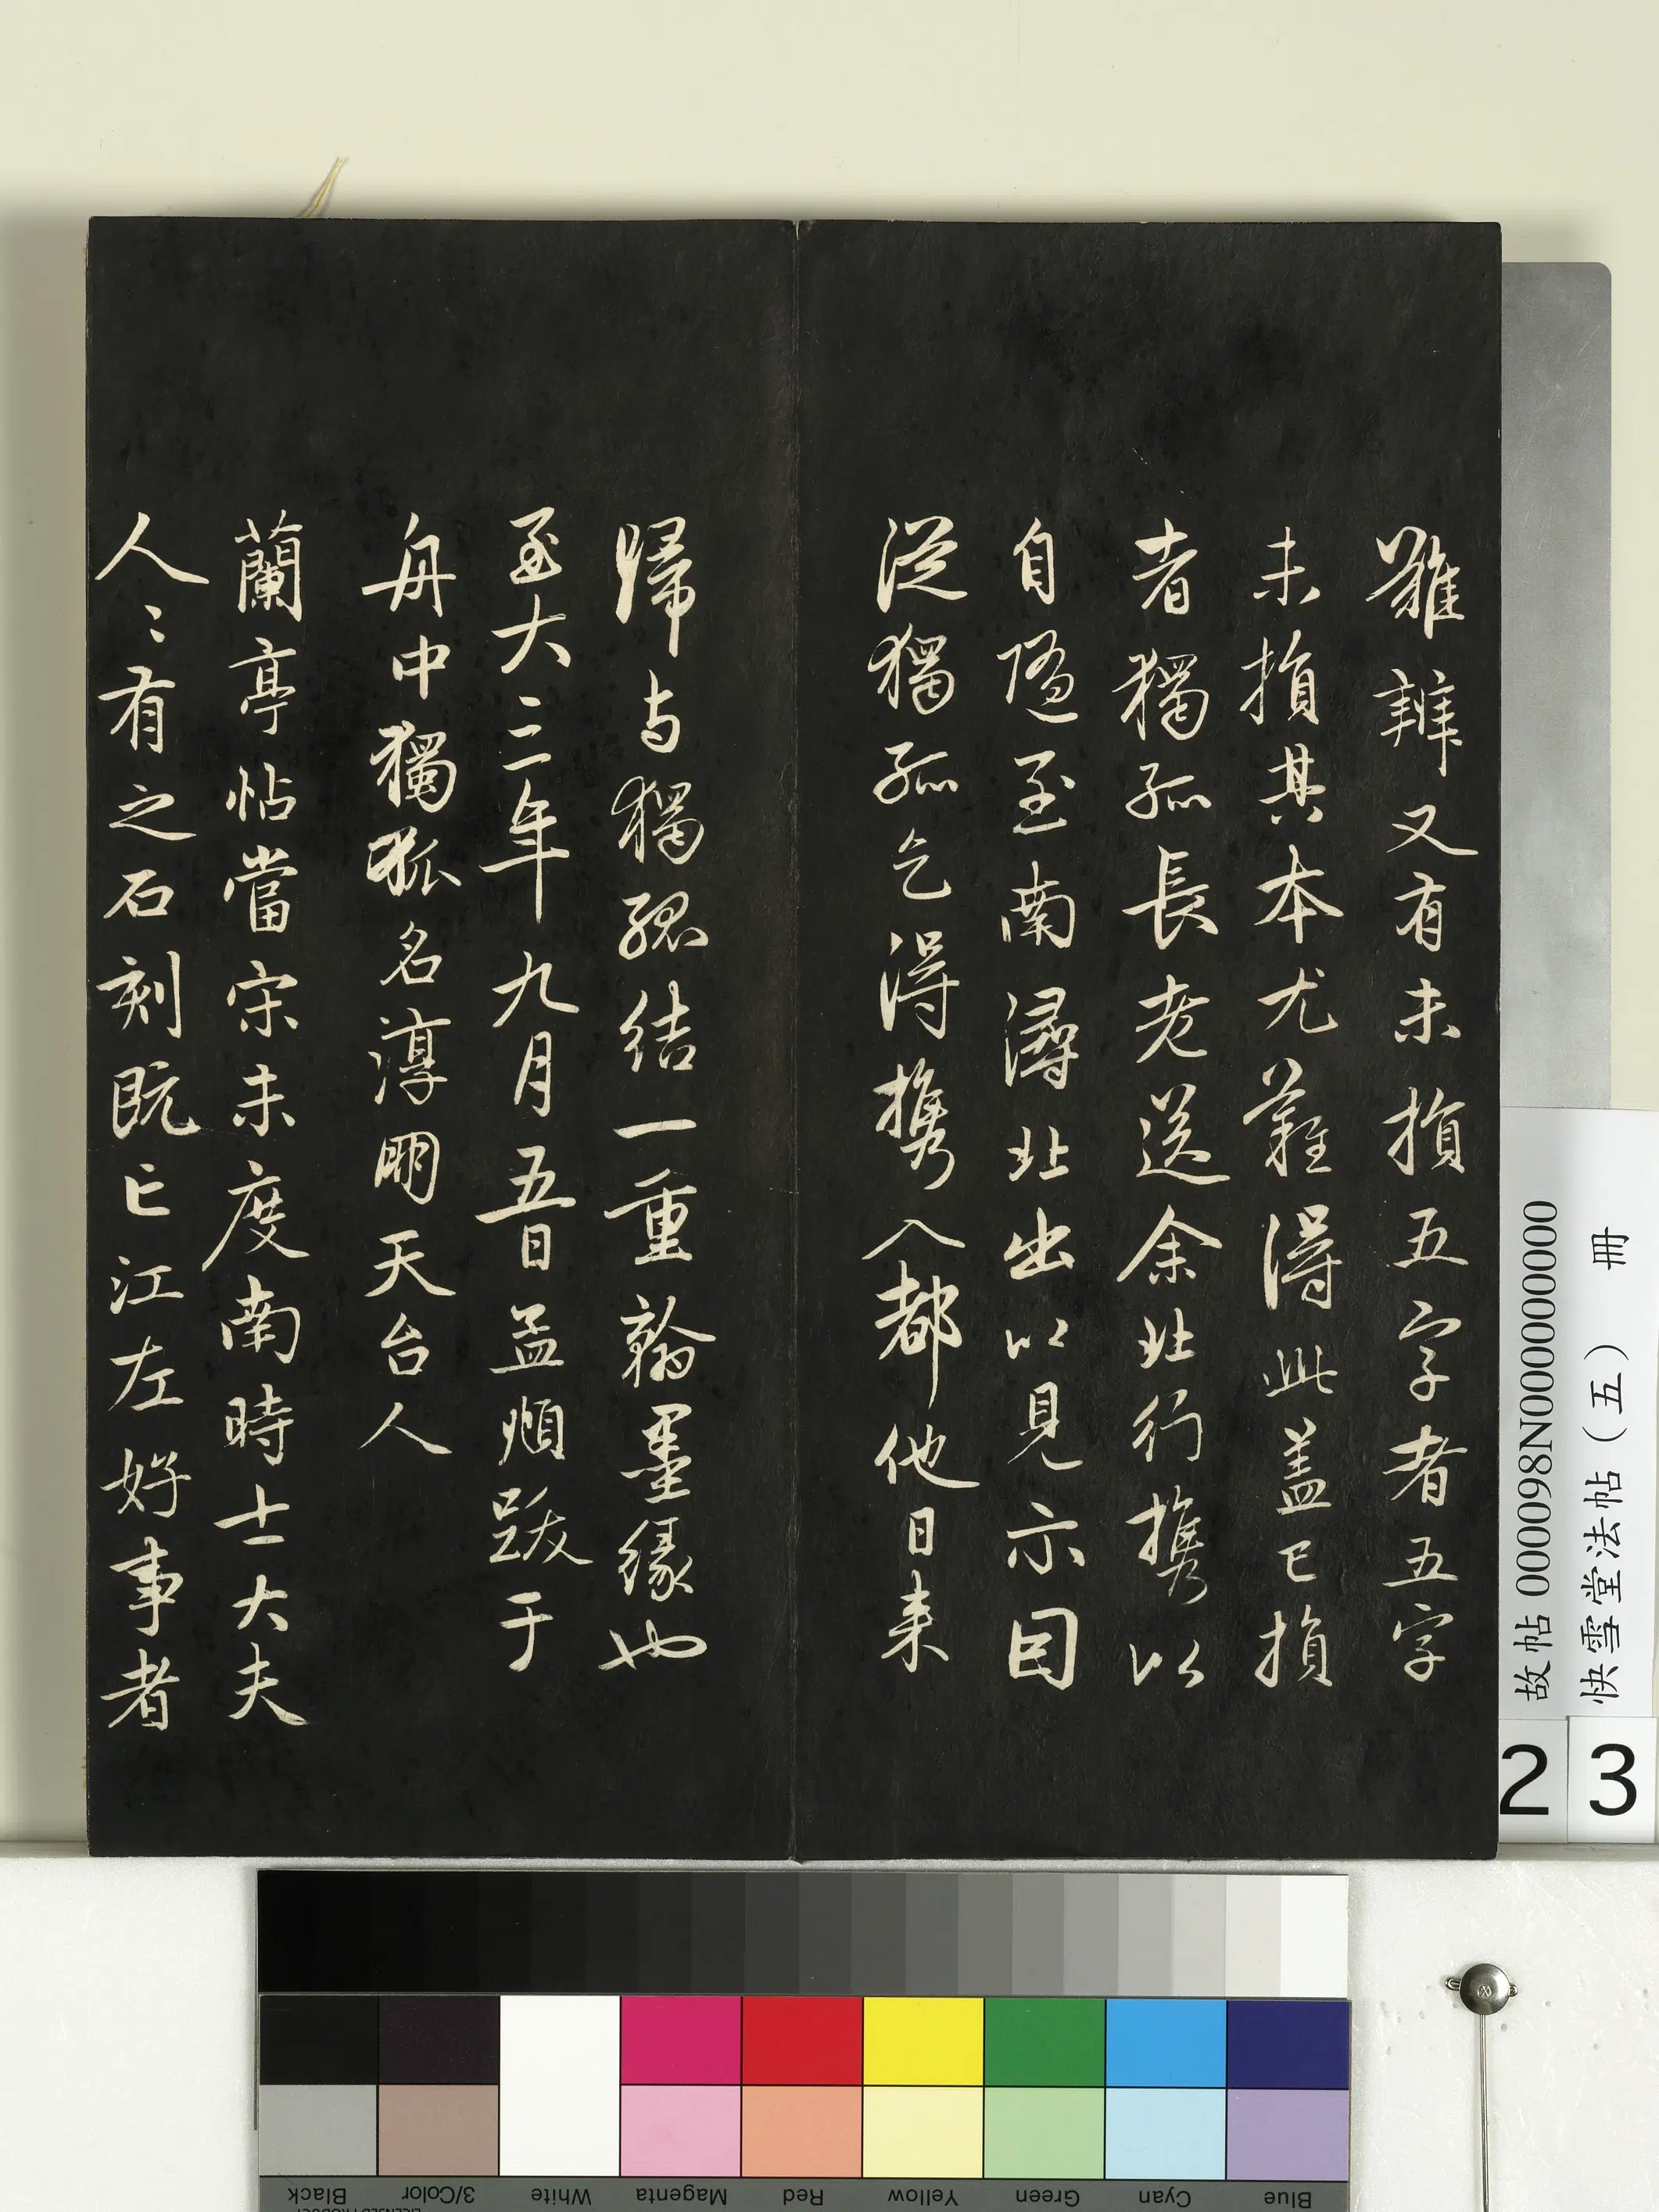 難辨又有未損五字者五字
未損其本尤難得此盖已損
者獨孤長老送余北行携以
自隨至南潯北出以見示因
從獨孤乞得携入都他日来
歸与獨孤結一重翰墨縁也
至大三年九月五日孟頫跋于
舟中獨孤名淳朋天台人
蘭亭帖當宋未度南時士大夫
人〻有之石刻既亡江左好事者
故帖 000098N000000000
快雪堂法帖（五） 冊
2 3
Black 3/Color White Magenta Red Yellow Green Cyan Blue